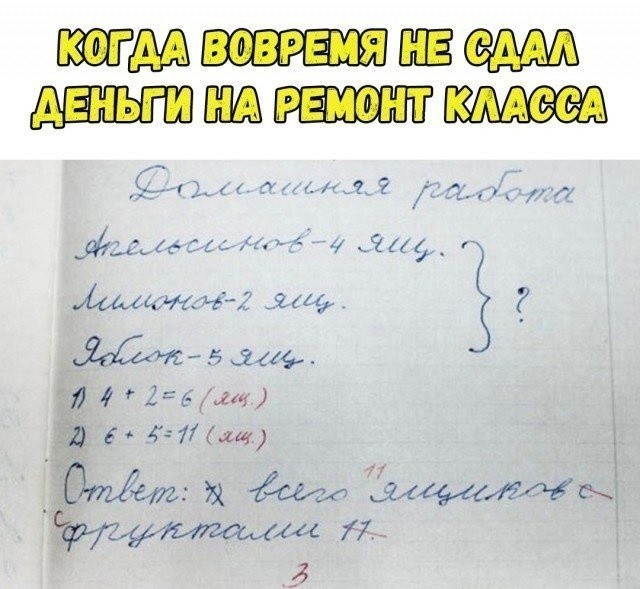 КОГДА ВОВРЕМЯ НЕ СДАЛ
ДЕНЬГИ НА РЕМОНТ КЛАССА
Домашняя работа
Апельсинов-4 ящ.
Лимонов-2 ящ. } ?
Яблок-5 ящ.
1) 4 + 2=6 (ящ.)
2) 6 + 5=11 (ящ.)
Ответ: всего 11 ящиков с
с фруктами 11.
3